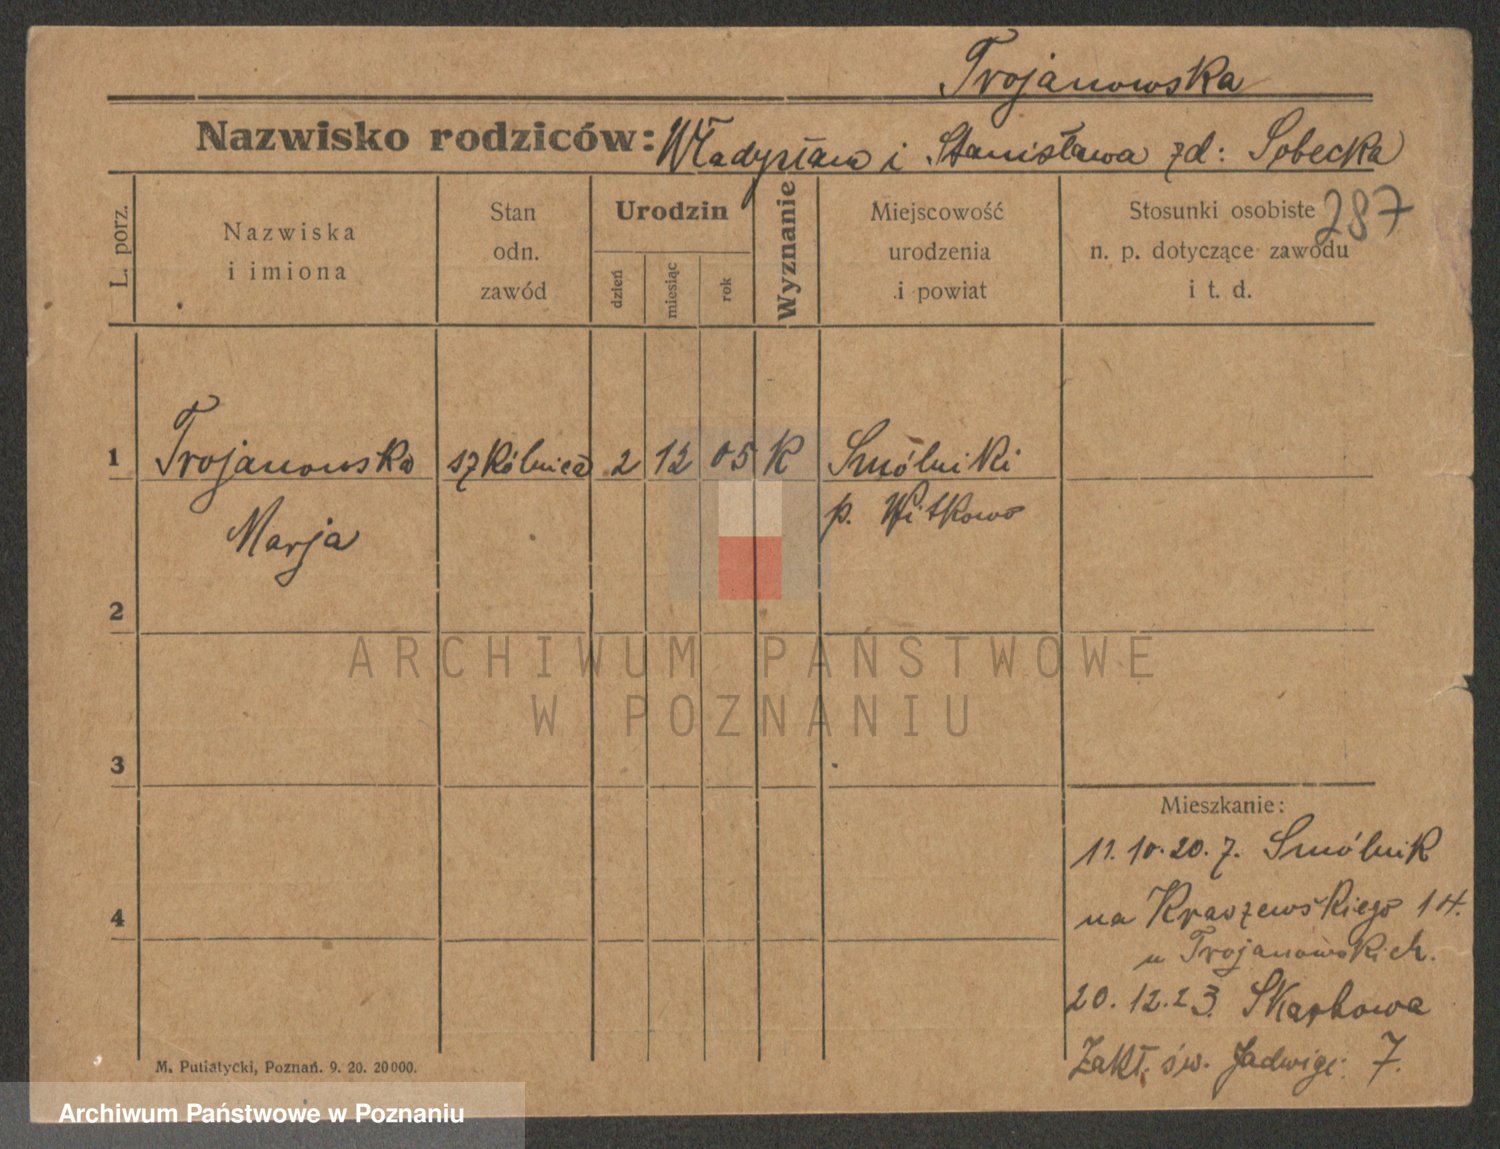 Trojanowska
Nazwisko rodziców: Władysław i Stanisława zd: Sobecka
287
L. porz.
Nazwiska
i imiona
Stan
odn.
zawód
Urodzin
dzień
miesiąc
rok
Wyznanie
Miejscowość
urodzenia
i powiat
Stosunki osobiste
n. p. dotyczące zawodu
i t. d.
1 Trojanowska szkólnica 2 12 05 K Smólniki
Marja p. Witkowo
2
ARCHIWUM PAŃSTWOWE
W POZNANIU
3
Mieszkanie:
11.10.20. z. Smólnik
na Kraszewskiego 14.
u Trojanowskich.
4
20.12.23. Skarbowa
Zakł. św. Jadwigi. 7.
M. Putiatycki, Poznań. 9. 20. 20000.
Archiwum Państwowe w Poznaniu